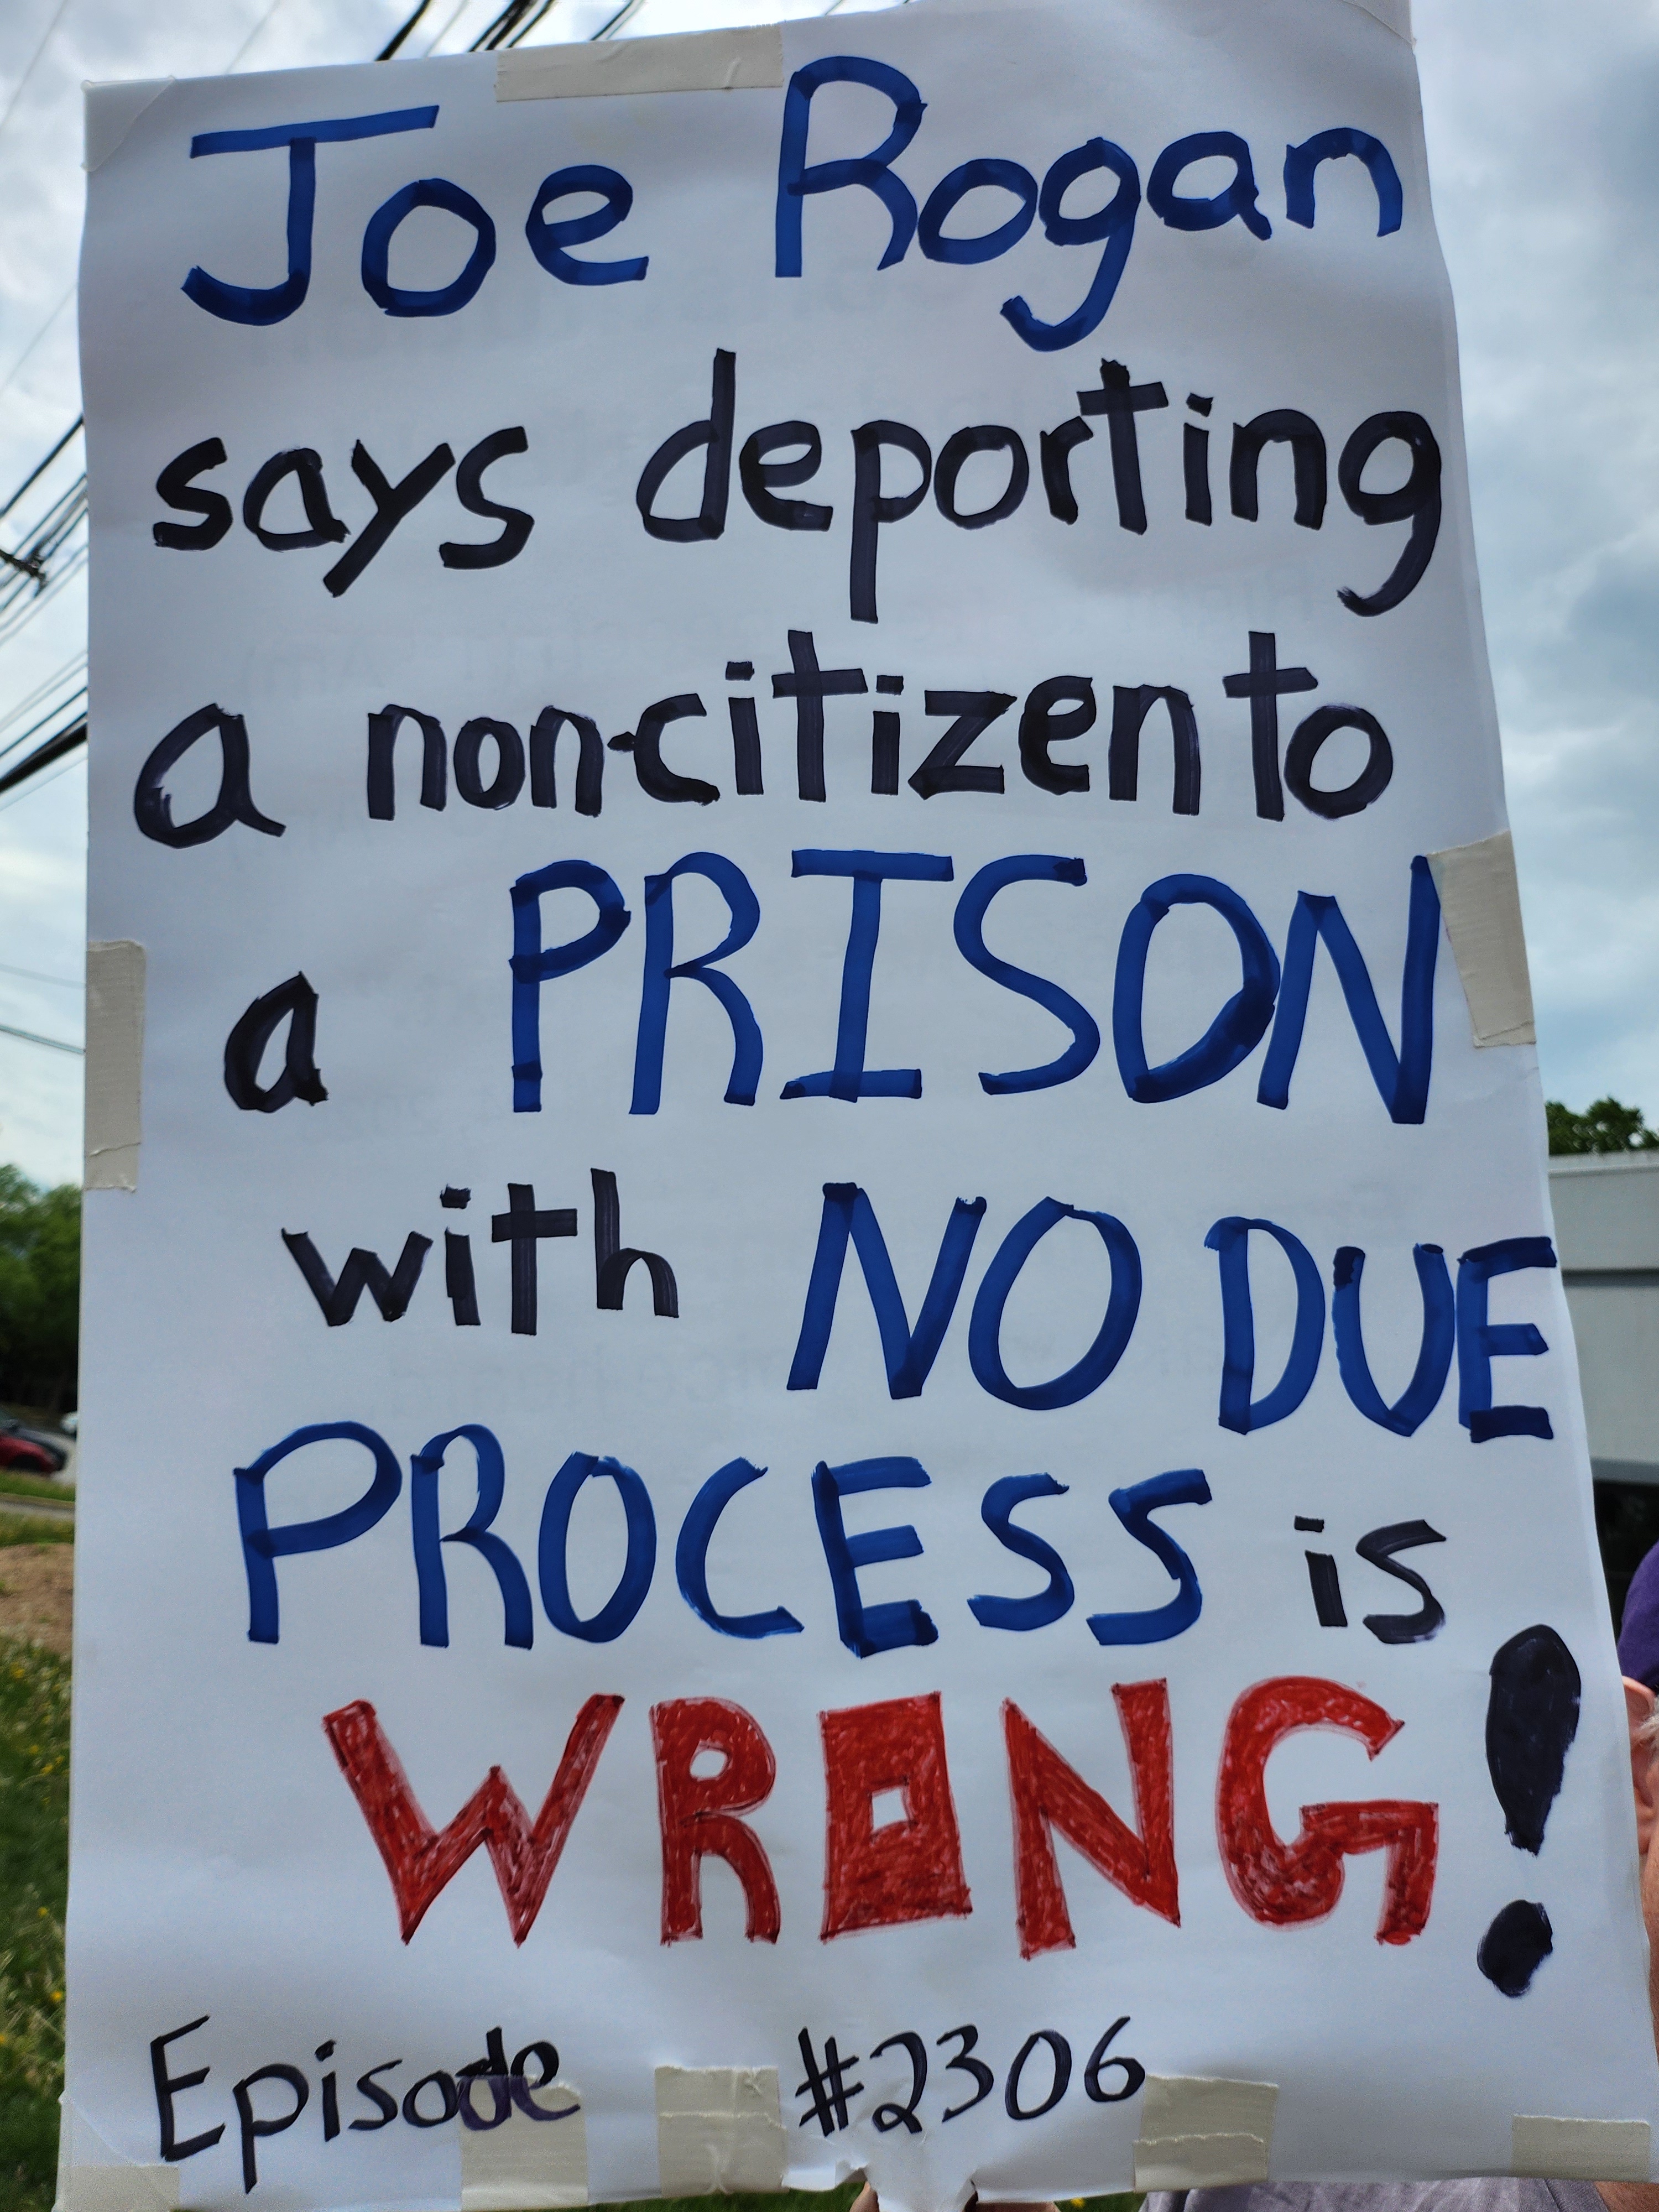 Joe Rogan
says deporting
a non-citizen to
a PRISON
with NO DUE
PROCESS is
WRONG!
Episode #2306